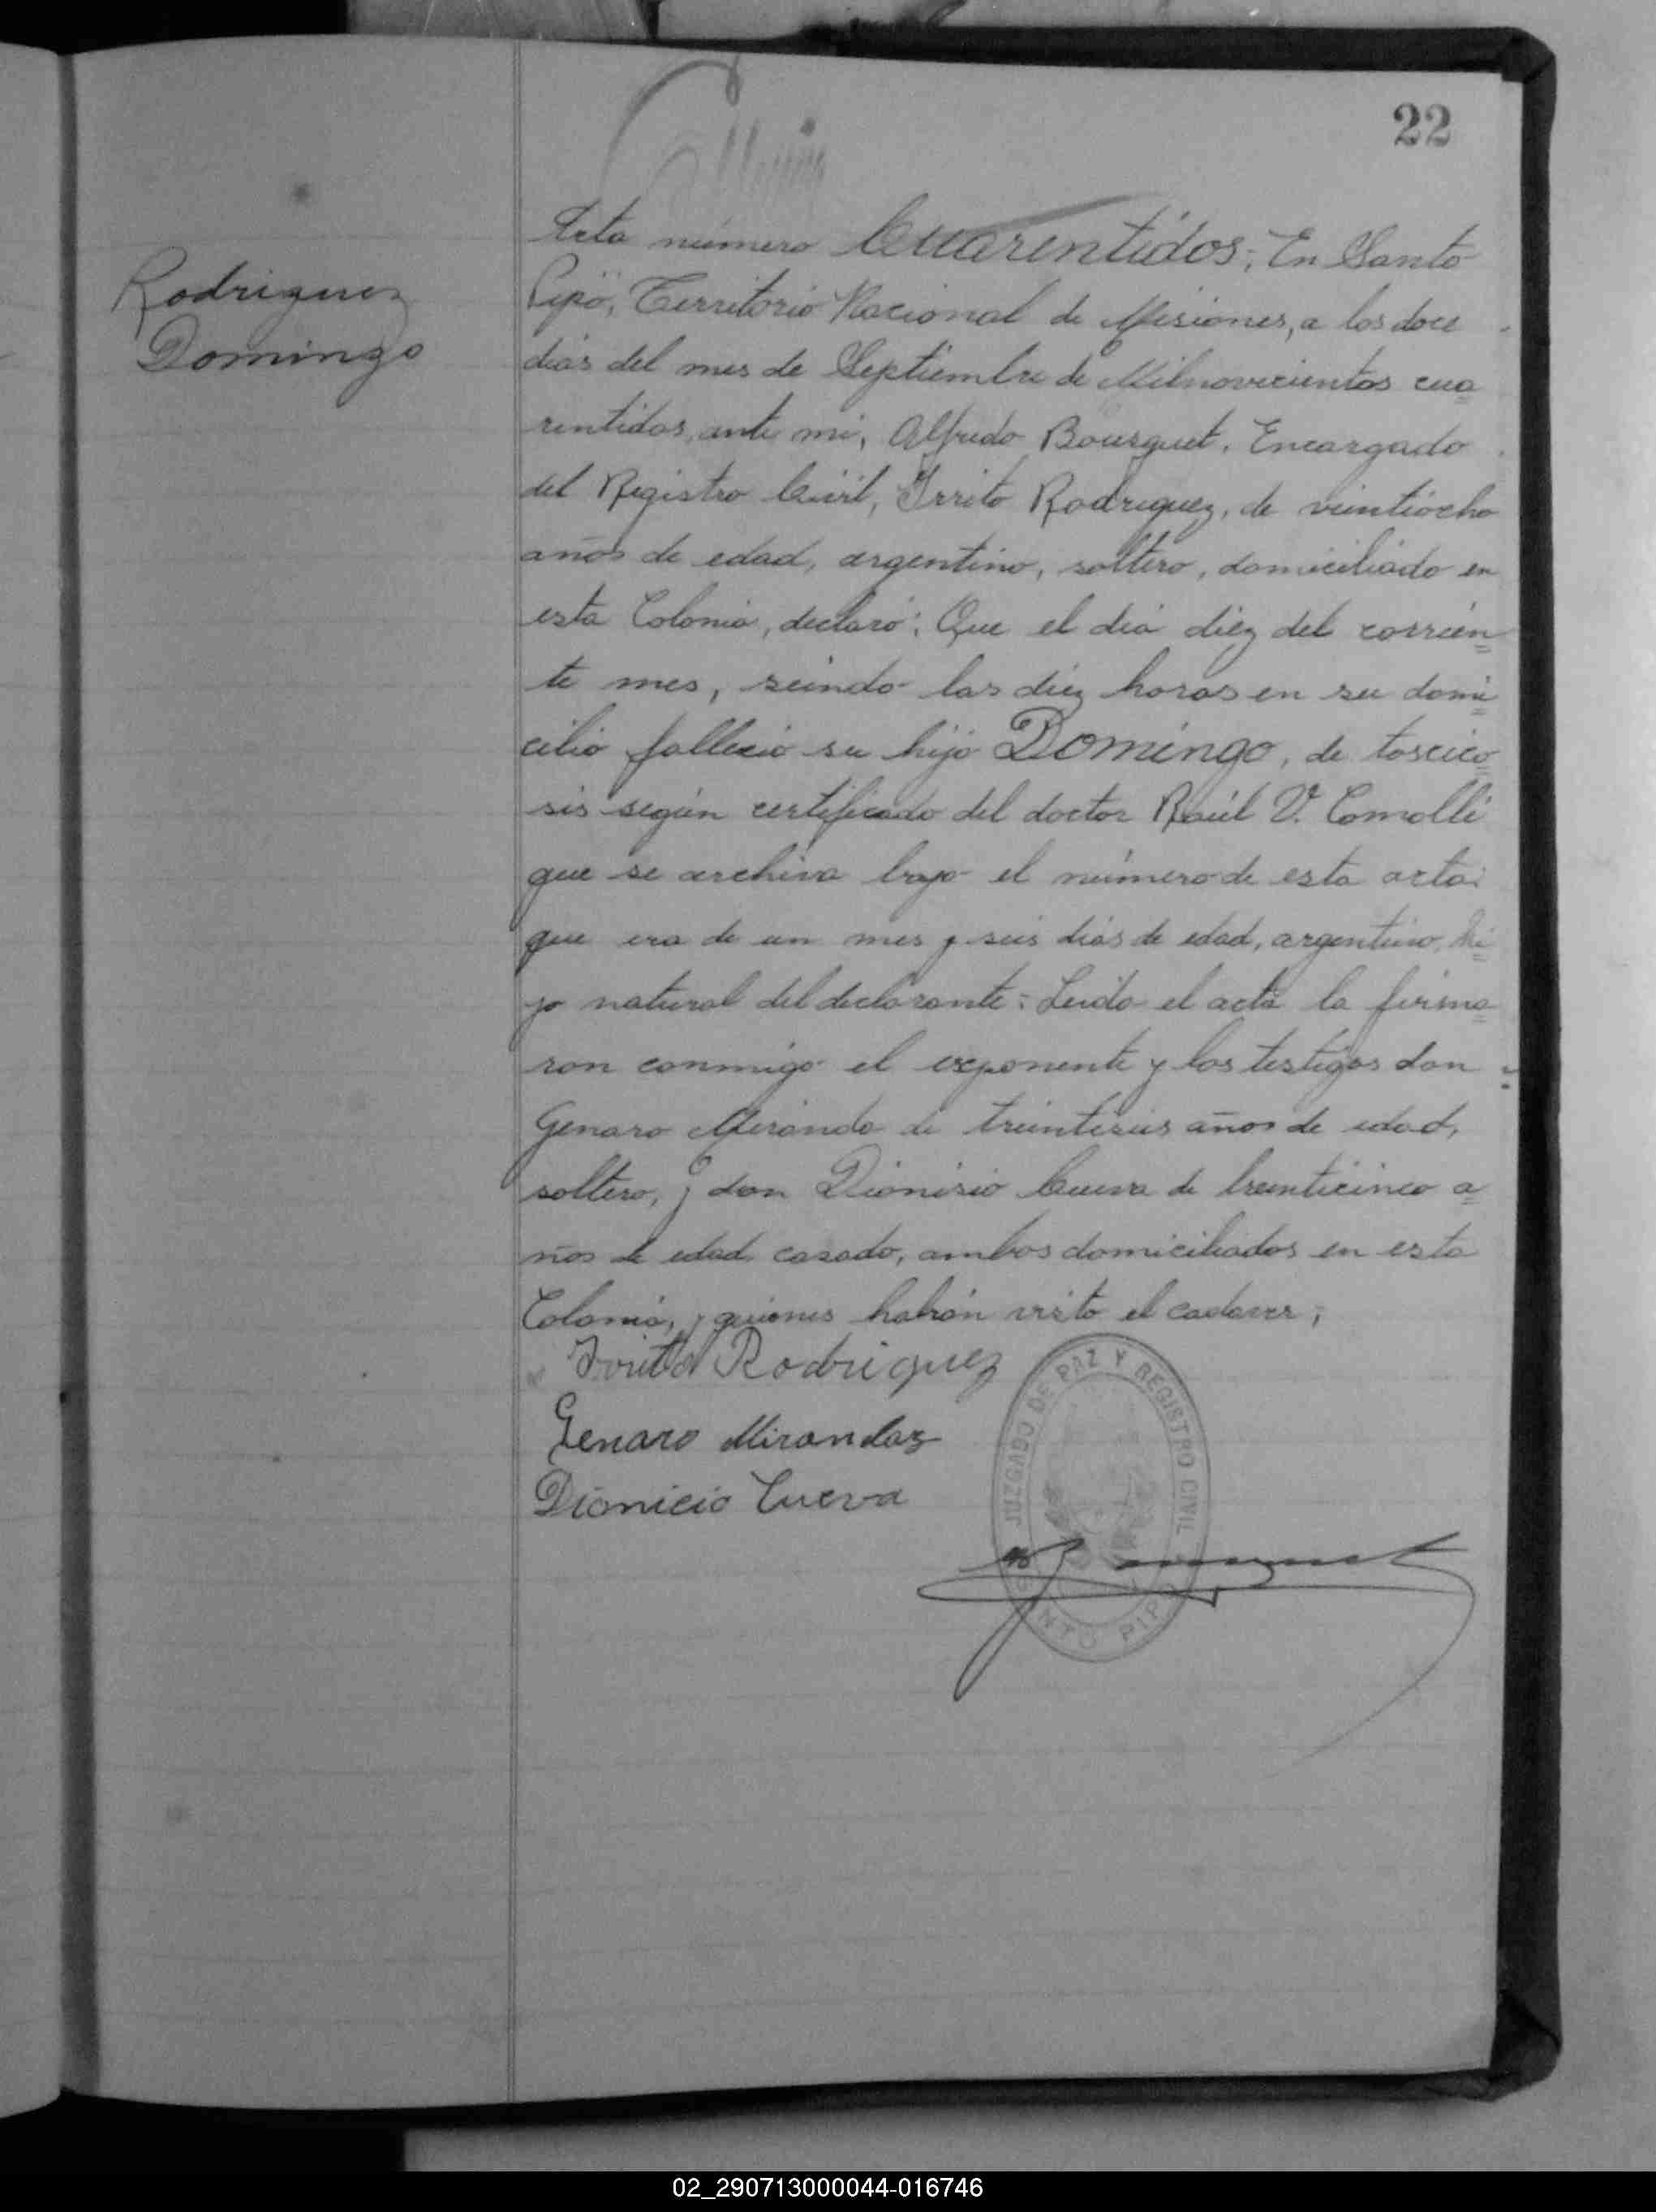 22
Rodriguez
Domingo
Acta número Cuarentidos; En Santo
Pipó, Territorio Nacional de Misiones, a los doce
días del mes de Septiembre de Milnovecientos cua
rentidos, ante mi, Alfredo Bousquet, Encargado
del Registro Civil, Irrito Rodriguez, de veintiocho
años de edad, argentino, soltero, domiciliado en
esta Colonia, declaró: Que el día diez del corrien
te mes, siendo las diez horas en su domi
cilio falleció su hijo Domingo, de toxico
sis según certificado del doctor Raúl V. Comolli
que se archiva bajo el número de esta acta:
que era de un mes y seis días de edad, argentino, hi
jo natural del declarante: Leída el acta la firma
ron conmigo el exponente y los testigos don
Genaro Miranda de treintiseis años de edad,
soltero, y don Dionisio Cueva de treinticinco a
ños de edad casado, ambos domiciliados en esta
Colonia, y quienes habían visto el cadaver;
Rodriguez
Genaro Miranda
Dionicio Cueva
JUZGADO DE PAZ Y REGISTRO CIVIL
SANTO PIPO
02_290713000044-016746